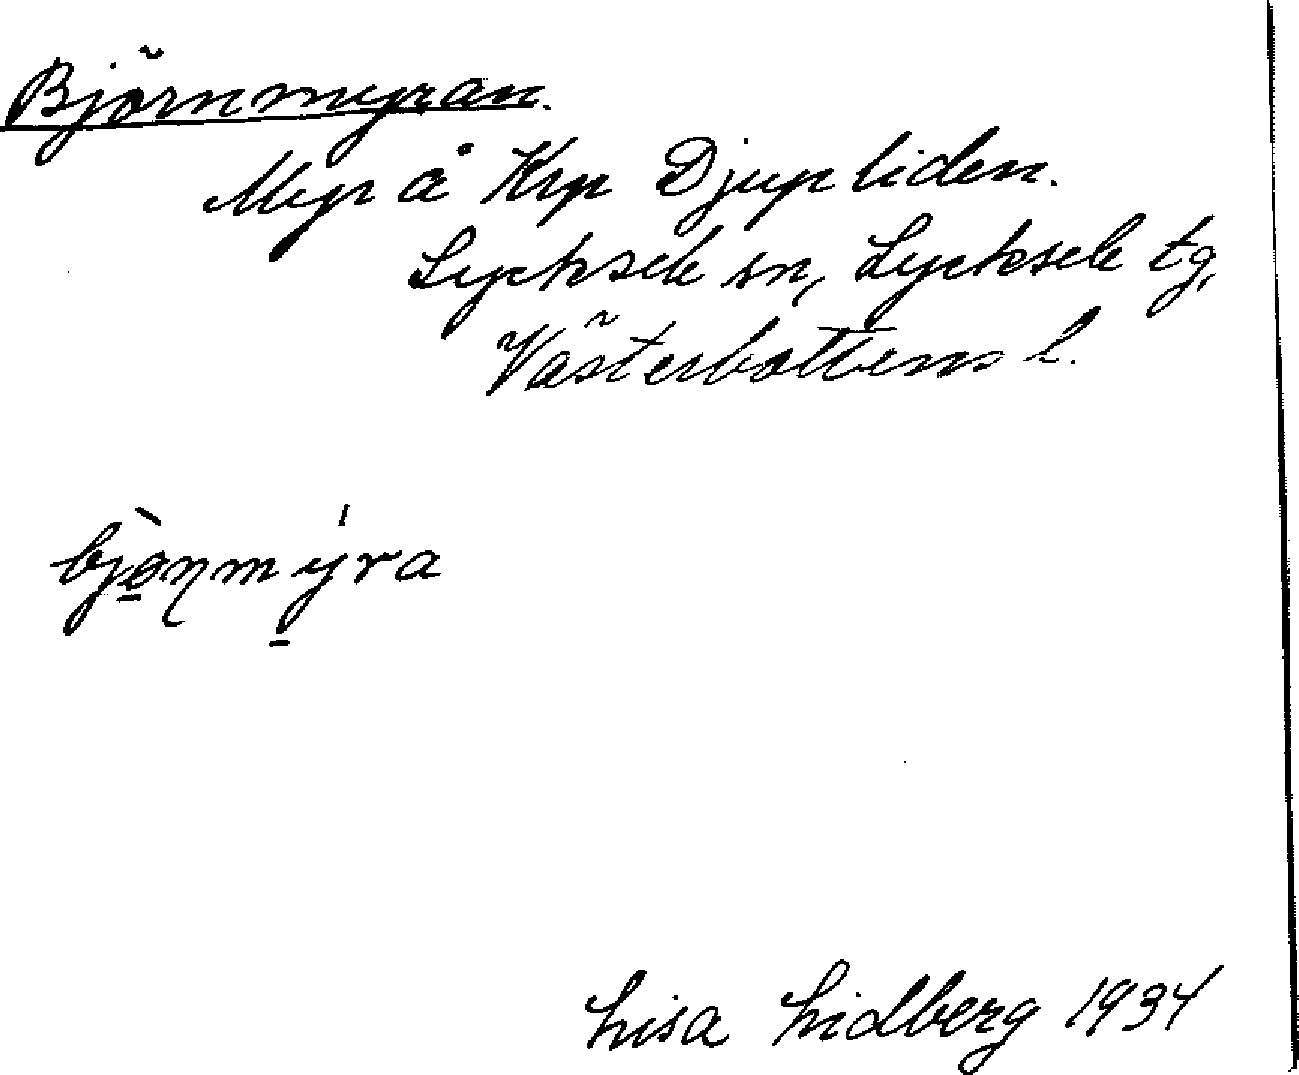 Björnmyran.
Myr å Krp Djupliden.
Lycksele sn, Lycksele tg,
Västerbottens l.
bjò̱ŋmý̱ra
Lisa Lidberg 1934